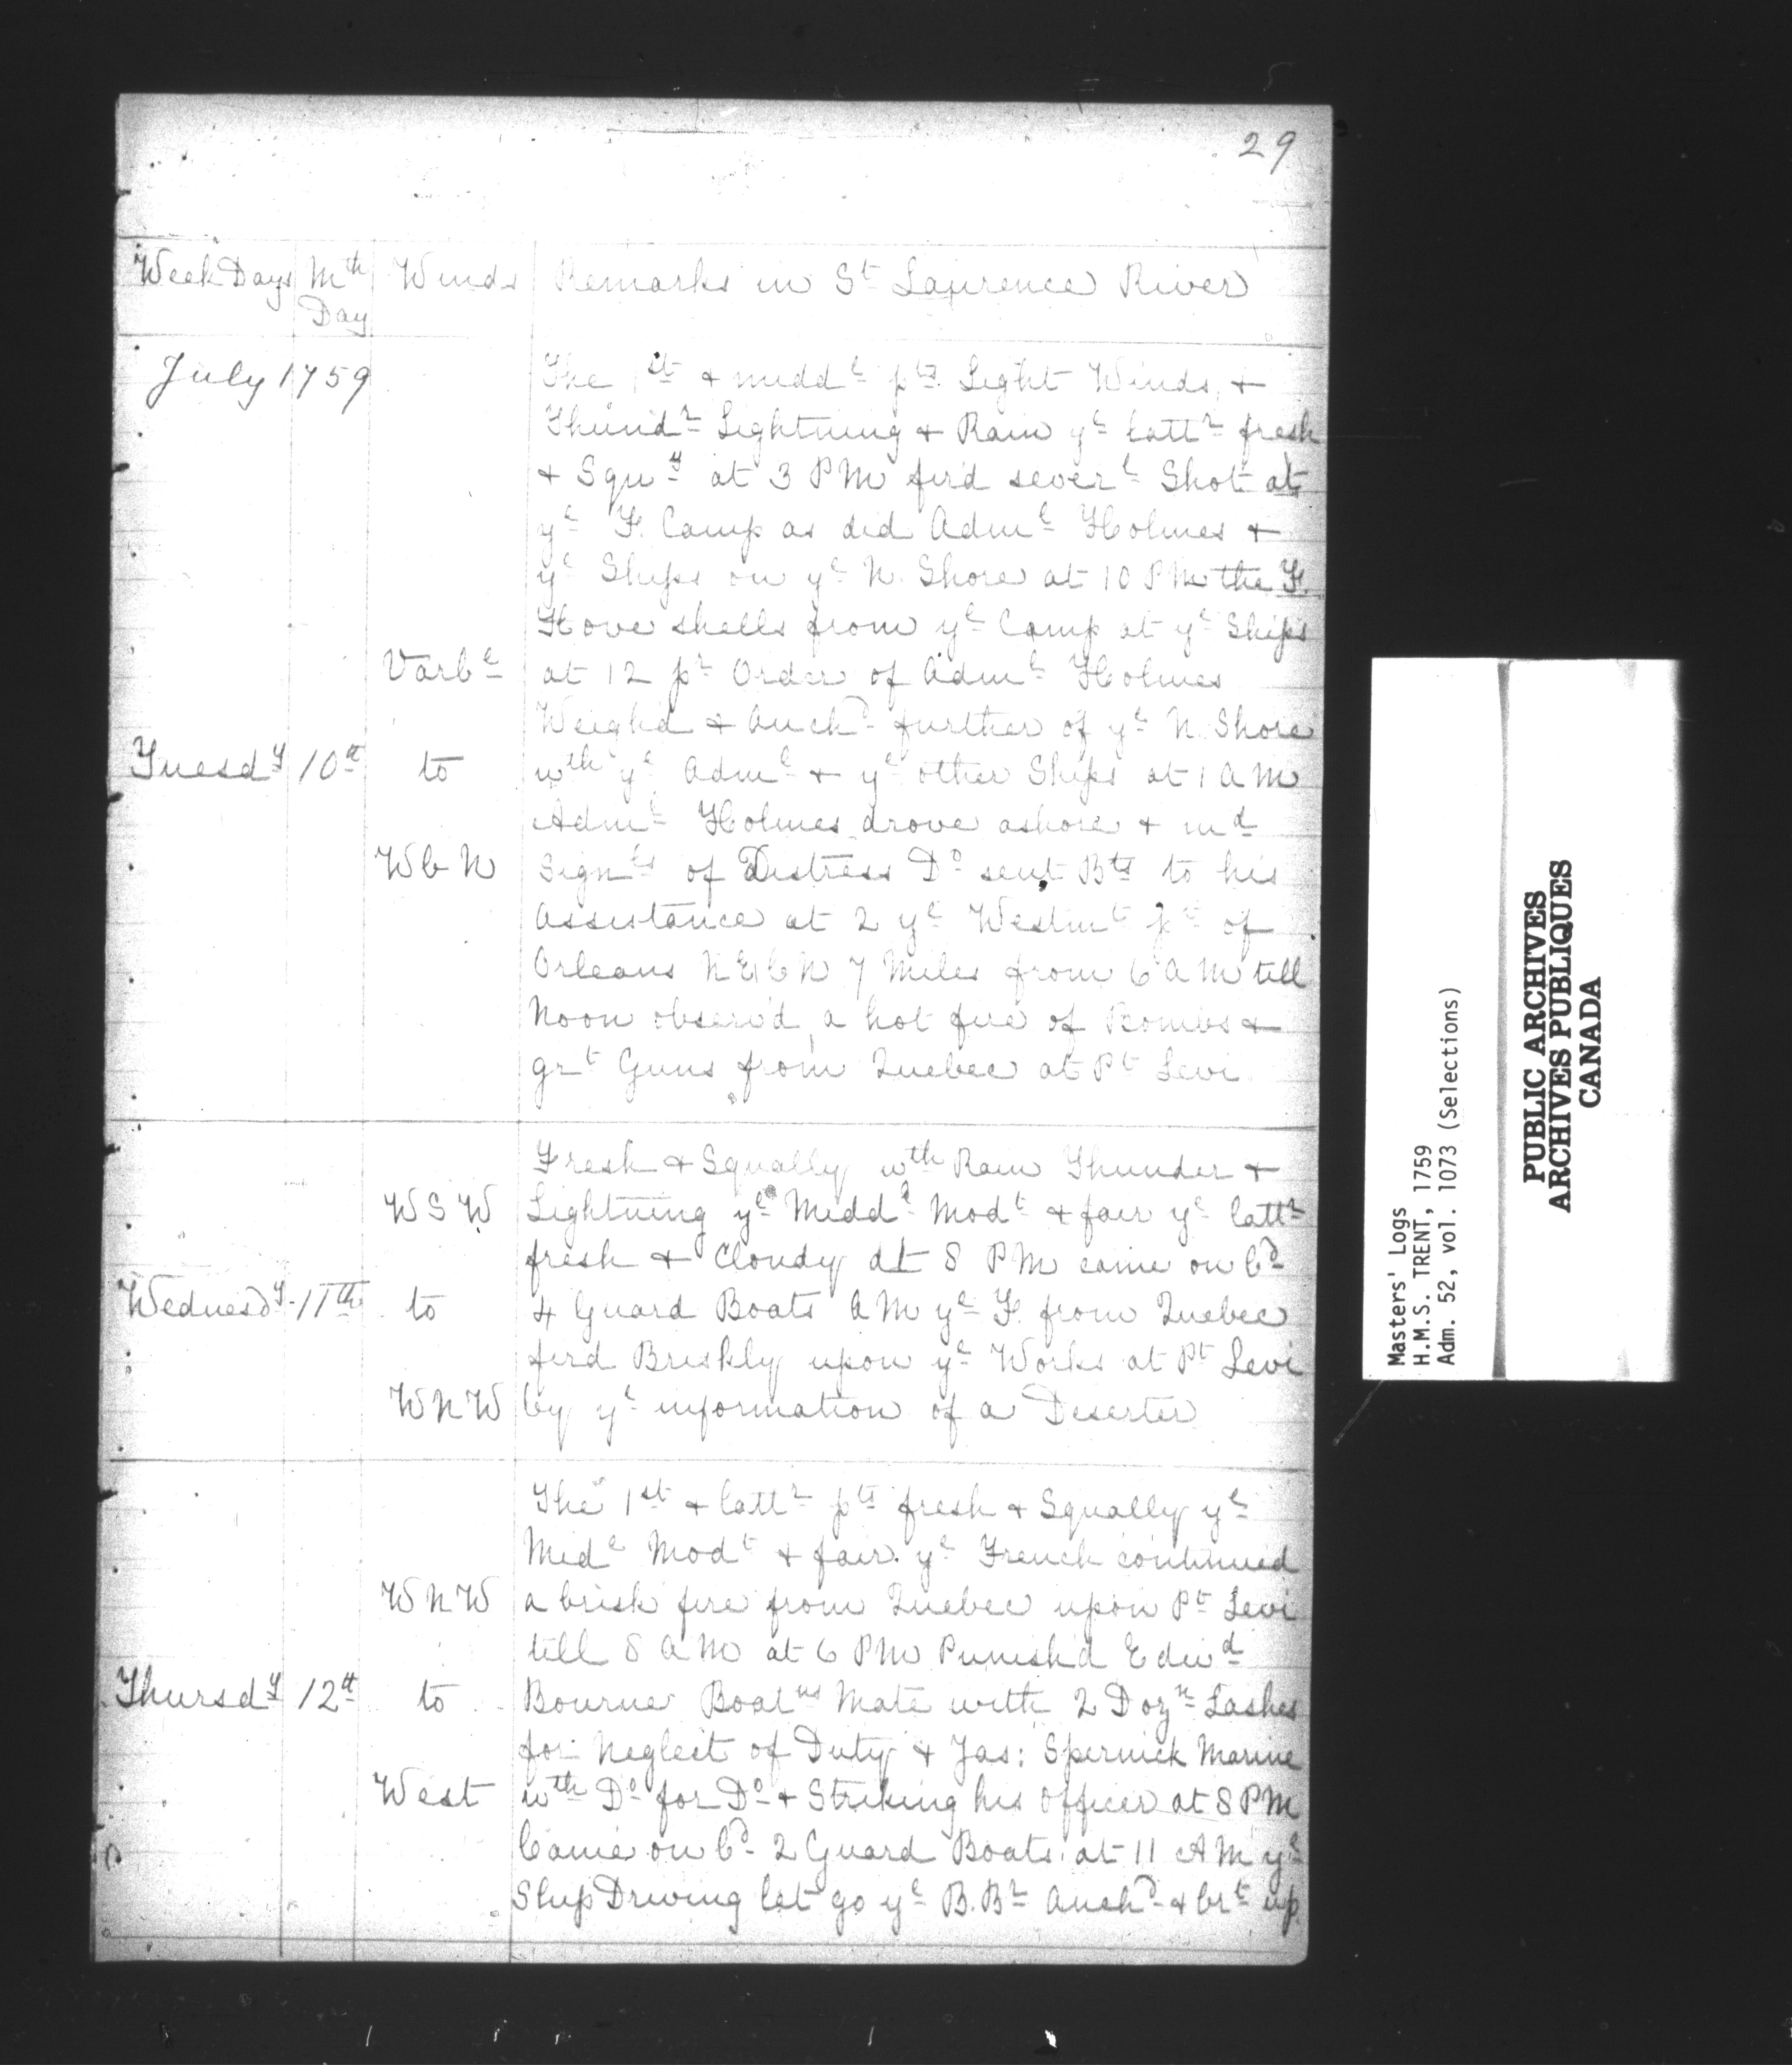 29
Week Days Mth Day Winds Remarks in St Laurence River
July 1759
The 1st & middl pts Light Winds, &
Thundr Lightning & Rain ye lattr fresh
& Squy at 3 PM fir'd severl Shot at
ye F. Camp as did Adml Holmes &
ye Ships on ye N. Shore at 10 PM the F.
Hove shells from ye Camp at ye Ships
Varble at 12 pr Order of Adml Holmes
Weigh'd & Anchd further of ye N. Shore
Tuesdy 10th to wth ye Adml & ye other Ships at 1 AM
Adml Holmes drove ashore & md
W b N Signls of Distress Do sent Bts to his
Assistance at 2 ye Westmt pt of
Orleans N E b N 7 Miles from 6 AM till
Noon observ'd a hot fire of Bombs &
grt Guns from Quebec at Pt Levi
Fresh & Squally wth Rain Thunder &
W S W Lightning ye Middl Modt & fair ye lattr
fresh & Cloudy at 8 PM came on bd
Wednesdy 11th to 4 Guard Boats AM ye F. from Quebec
fird Briskly upon ye Works at Pt Levi
W N W by ye information of a Deserter
The 1st & lattr pts fresh & Squally ye
Midl Modt & fair. ye French continued
W N W a brisk fire from Quebec upon Pt Levi
till 8 AM at 6 PM Punish'd Edwd
Thursdy 12th to Bourne Boatns Mate with 2 Dozn Lashes
for Neglect of Duty & Jas: Spernick Marine
West wth Do for Do & Striking his Officer at 8 PM
Came on bd 2 Guard Boats at 11 AM ye
Ship Driving let go ye B. Br Anchd & brt up
Masters' Logs
H.M.S. TRENT, 1759
Adm. 52, vol. 1073 (Selections)
PUBLIC ARCHIVES
ARCHIVES PUBLIQUES
CANADA